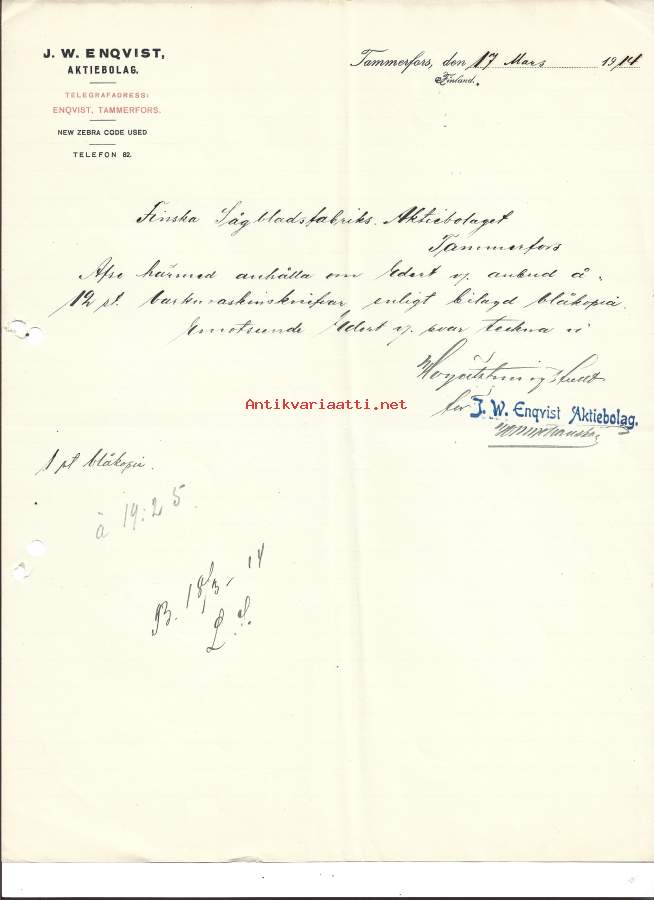 J. W. ENQVIST,
AKTIEBOLAG.
TELEGRAFADRESS:
ENQVIST, TAMMERFORS.
NEW ZEBRA CODE USED
TELEFON 82.
Tammerfors, den 17 Mars 1914
Finland.
Finska Sågbladsfabriks. Aktiebolaget
Tammerfors
härmed anhålla om Edert v. anbud å
12 pt. barkmaskinsknifvar enligt bilagd blåkopia.
Emotseende Edert v. svar teckna vi
Högaktningsfullt
för J. W. Enqvist Aktiebolag.
Antikvariaatti.net
1 pt blåkopia.
à 19:25.
B. 18/3 14